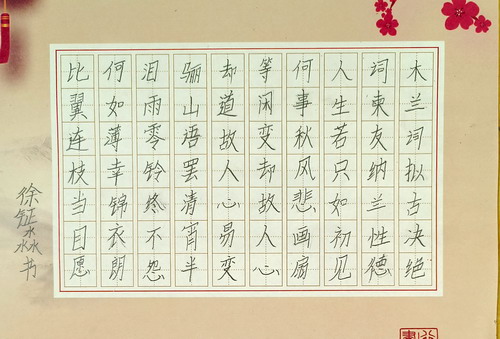 木兰词拟古决绝
词柬友纳兰性德
人生若只如初见
何事秋风悲画扇
等闲变却故人心
却道故人心易变
骊山语罢清宵半
泪雨零铃终不怨
何如薄幸锦衣朗
比翼连枝当日愿
徐钲淼书